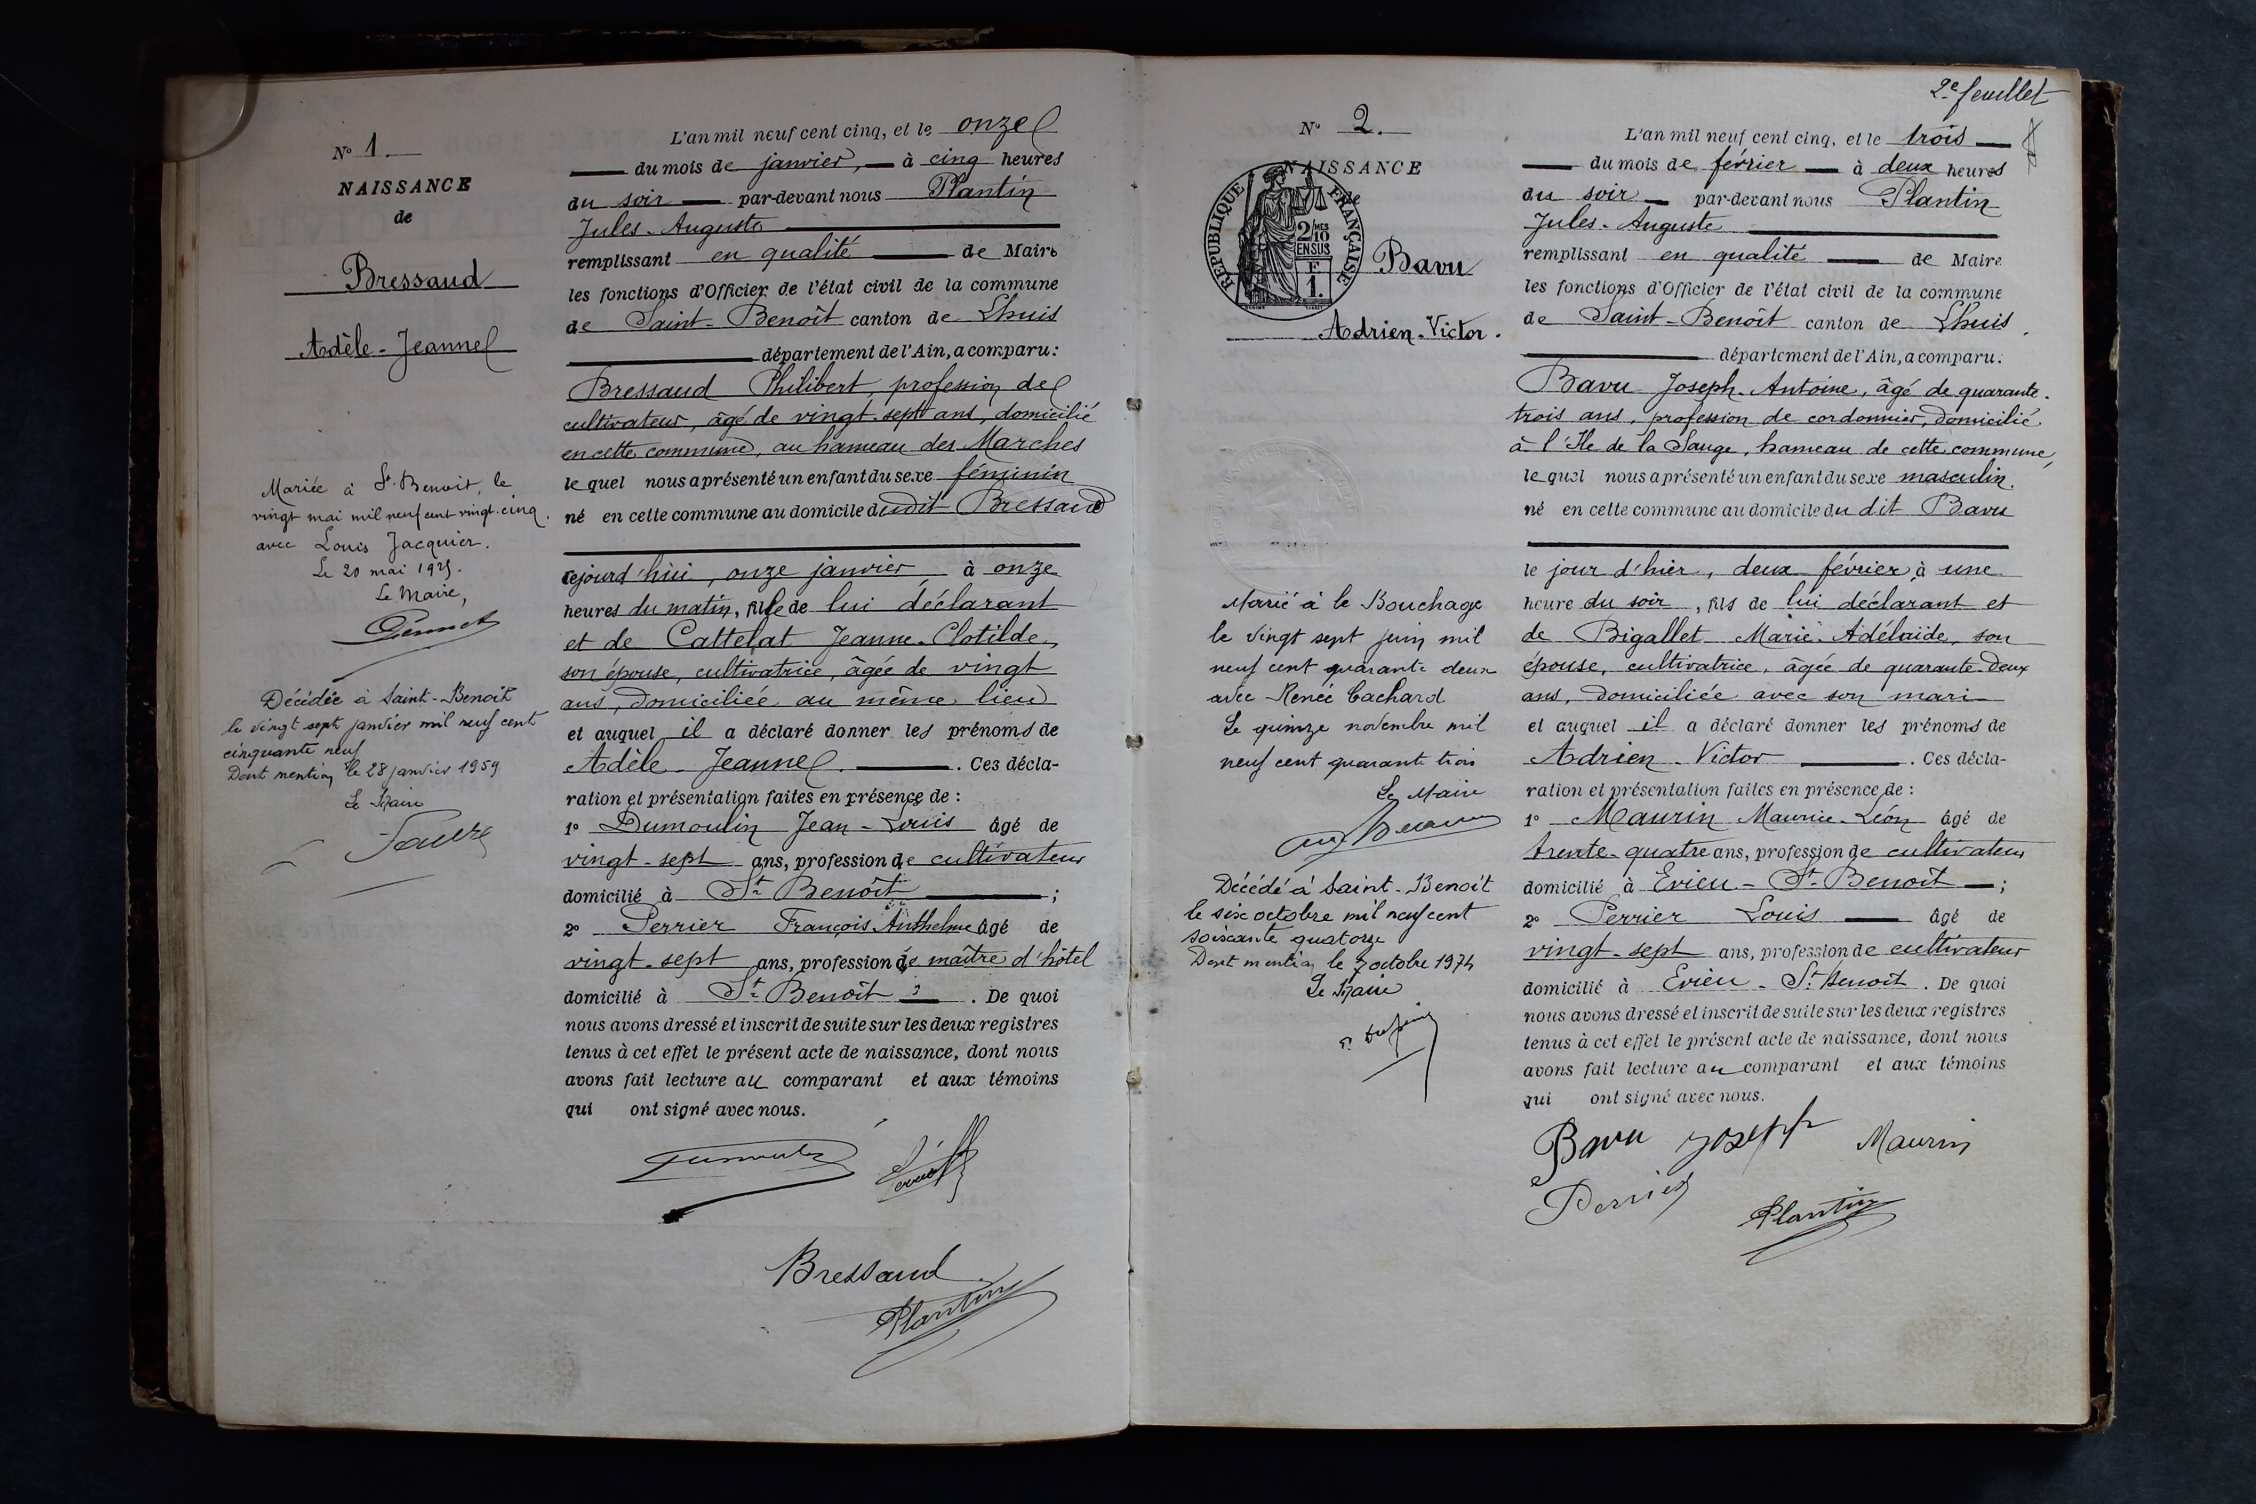 N° 1.
NAISSANCE
de
Bressaud
Adèle-Jeanne
Mariée à St-Benoit, le
vingt mai mil neuf cent vingt-cinq.
avec Louis Jacquier.
Le 20 mai 1925.
Le Maire,
Décédée à Saint-Benoit
le vingt sept janvier mil neuf cent
cinquante neuf
Dont mention le 28 janvier 1959
Le Maire
L'an mil neuf cent cinq, et le onze
du mois de janvier, à cinq heures
du soir par-devant nous Plantin
Jules-Auguste
remplissant en qualité de Maire
les fonctions d'Officier de l'état civil de la commune
de Saint-Benoît canton de Lhuis
département de l'Ain, a comparu:
Bressaud Philibert, profession de
cultivateur, âgé de vingt-sept ans, domicilié
en cette commune, au hameau des Marches
le quel nous a présenté un enfant du sexe féminin
né en cette commune au domicile dudit Bressaud
cejourd'hui, onze janvier à onze
heures du matin, fille de lui déclarant
et de Cattelat Jeanne-Clotilde,
son épouse, cultivatrice, âgée de vingt
ans, domiciliée au même lieu
et auquel il a déclaré donner les prénoms de
Adèle-Jeanne. Ces décla-
ration et présentation faites en présence de :
1° Dumoulin Jean-Louis âgé de
vingt-sept ans, profession de cultivateur
domicilié à St Benoît ;
2° Perrier François Anthelme âgé de
vingt-sept ans, profession de maître d'hôtel
domicilié à St Benoît . De quoi
nous avons dressé et inscrit de suite sur les deux registres
tenus à cet effet le présent acte de naissance, dont nous
avons fait lecture au comparant et aux témoins
qui ont signé avec nous.
Dumoulin
Bressaud
Plantin
2e feuillet
N° 2.
NAISSANCE
de
RÉPUBLIQUE FRANÇAISE
2/10
MES
EN SUS
F
1.
Bavu
Adrien-Victor.
Marié à le Bouchage
le vingt sept juin mil
neuf cent quarante deux
avec Renée Cachard
Le quinze novembre mil
neuf cent quarante trois
Le Maire
Décédé à Saint-Benoit
le six octobre mil neuf cent
soixante quatorze
Dont mention le 7 octobre 1974
Le Maire
L'an mil neuf cent cinq, et le trois
du mois de février à deux heures
du soir par-devant nous Plantin
Jules-Auguste
remplissant en qualité de Maire
les fonctions d'Officier de l'état civil de la commune
de Saint-Benoît canton de Lhuis
département de l'Ain, a comparu:
Bavu Joseph-Antoine, âgé de quarante-
trois ans, profession de cordonnier, domicilié
à l'Ile de la Sauge, hameau de cette commune,
le quel nous a présenté un enfant du sexe masculin.
né en cette commune au domicile du dit Bavu
le jour d'hier, deux février à une
heure du soir, fils de lui déclarant et
de Bigallet Marie-Adélaïde, son
épouse, cultivatrice, âgée de quarante-deux
ans, domiciliée avec son mari
et auquel il a déclaré donner les prénoms de
Adrien-Victor . Ces décla-
ration et présentation faites en présence de :
1° Maurin Maurice-Léon âgé de
trente-quatre ans, profession de cultivateur
domicilié à Evieu-St-Benoît ;
2° Perrier Louis âgé de
vingt-sept ans, profession de cultivateur
domicilié à Evieu-St-Benoît . De quoi
nous avons dressé et inscrit de suite sur les deux registres
tenus à cet effet le présent acte de naissance, dont nous
avons fait lecture au comparant et aux témoins
qui ont signé avec nous.
Bavu Joseph Maurin
Perrier
Plantin